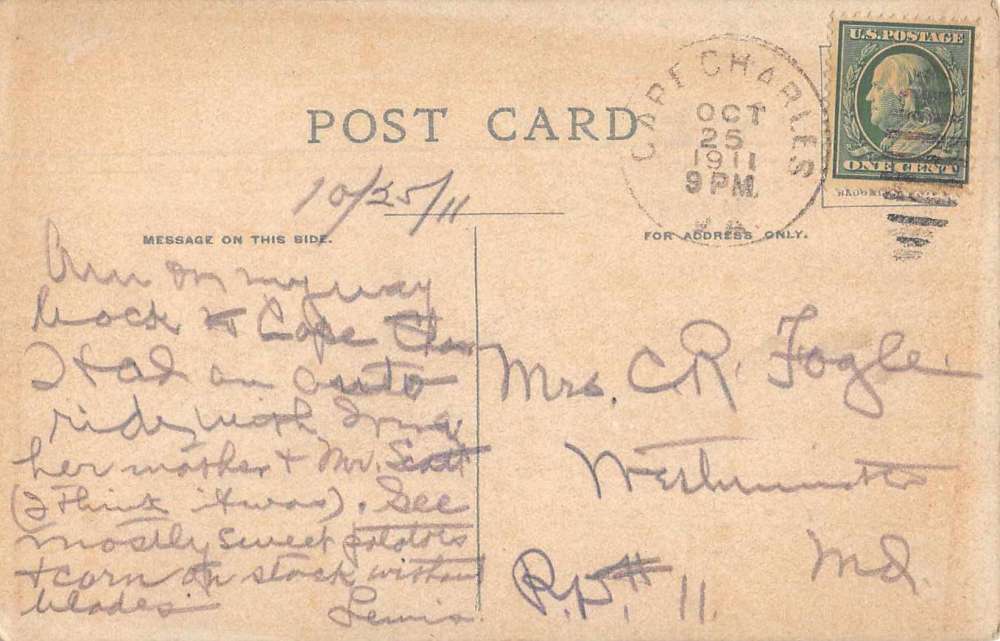 U.S. POSTAGE
ONE CENT
CAPE CHARLES
OCT
25
1911
9 PM.
VA.
POST CARD
10/25/11
MESSAGE ON THIS SIDE.
FOR ADDRESS ONLY.
Am on my way
back to Cape Chas
I had an auto
ride with Irma,
her mother & Mr. Scott
(I think it was). See
mostly sweet potatoes
& corn on stock without
blades.
Lewis.
Mrs. C. R. Fogle.
Westminster
Md.
R.D. # 11.